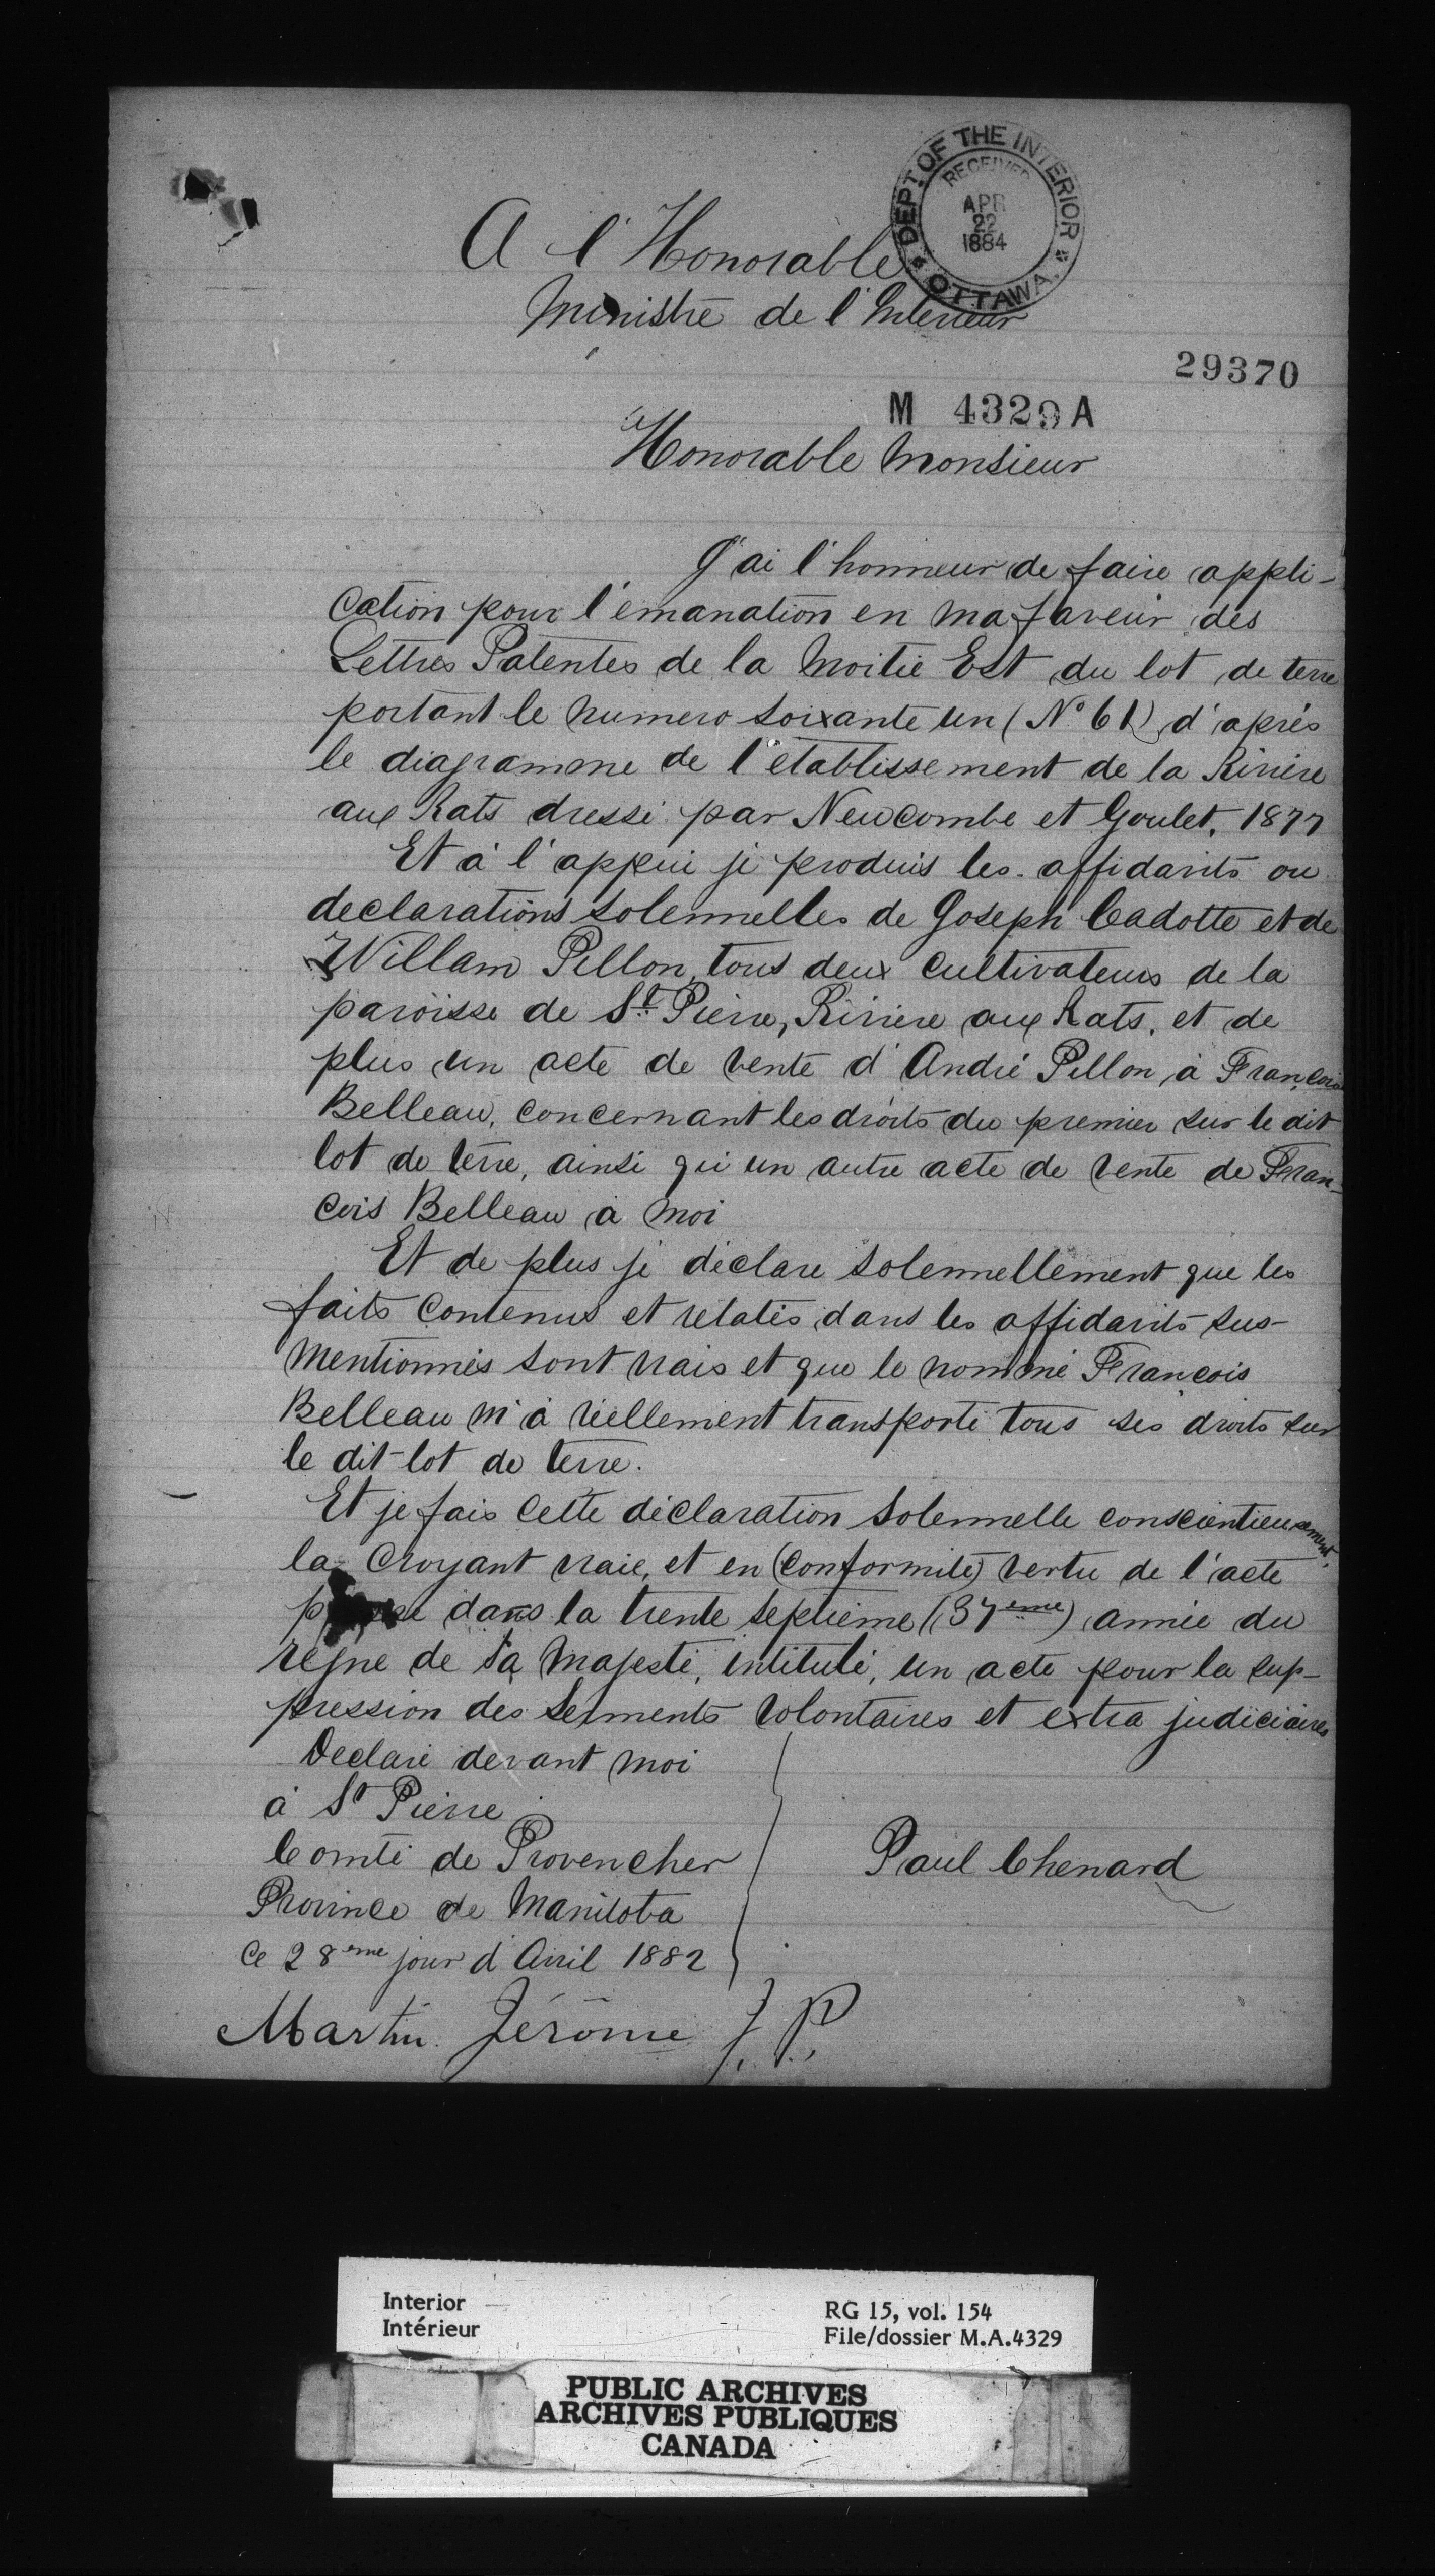 DEPT. OF THE INTERIOR
RECEIVED
APR
22
1884
OTTAWA.
A l'Honorable
Ministre de l'Interieur
29370
M 4329 A
Honorable Monsieur
J'ai l'honneur de faire appli-
cation pour l'émanation en ma faveur des
Lettres Patentes de la Moitié Est du lot de terre
portant le numero soixante un (No 61) d'après
le diagramme de l'etablissement de la Rivière
aux Rats dressé par Newcombe et Goulet, 1877
Et à l'appui je produis les affidavits ou
declarations solennelles de Joseph Cadotte et de
Willam Pellon, tous deux cultivateurs de la
paroisse de St. Pierre, Rivière aux Rats, et de
plus un acte de vente d'André Pellon à François
Belleau, concernant les droits du premier sur le dit
lot de terre, ainsi qu'un autre acte de vente de Fran-
cois Belleau à moi
Et de plus je déclare solennellement que les
faits contenus et relatés dans les affidavits sus-
mentionnés sont vrais et que le nommé François
Belleau m'a réellement transporté tous ses droits sur
le dit lot de terre.
Et je fais cette déclaration solennelle conscientieusement,
la croyant vraie, et en (conformité) vertu de l'acte
dans la trente septième (37eme) année du
règne de Sa Majesté, intitulé, un acte pour la sup-
pression des serments volontaires et extra judiciaires
Declaré devant moi
à St Pierre
Comté de Provencher
Province de Manitoba
Ce 28eme jour d'Avril 1882
Paul Chenard
Martin Jérôme J.P.
Interior
Intérieur
RG 15, vol. 154
File/dossier M.A.4329
PUBLIC ARCHIVES
ARCHIVES PUBLIQUES
CANADA